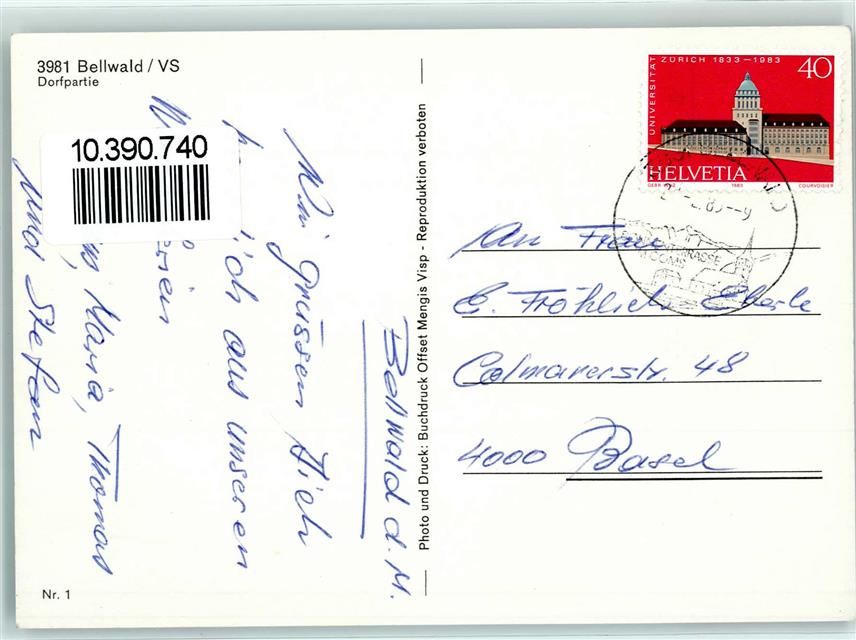 3981 Bellwald / VS
Dorfpartie
10.390.740
Bellwald d. M.
Wir grüssen Dich
ich aus unseren
erien
Maria, Thomas
und Stefan
Nr. 1
Photo und Druck: Buchdruck Offset Mengis Visp - Reproduktion verboten
UNIVERSITÄT ZÜRICH 1833–1983
40
HELVETIA
1983
COURVOISIER
An Frau
E. Fröhlich Eberle
Colmarerstr. 48
4000 Basel